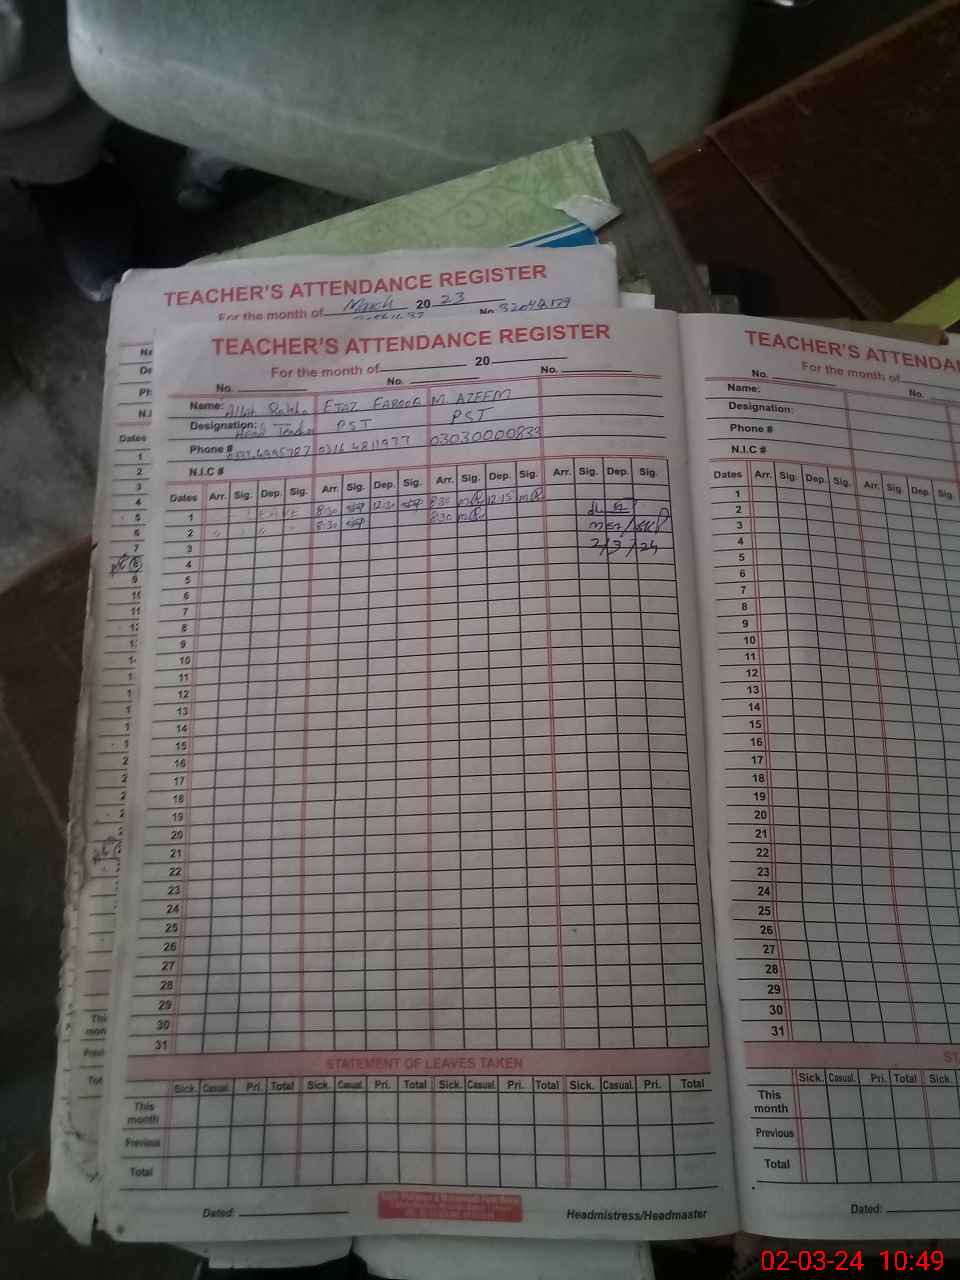 TEACHER'S ATTENDANCE REGISTER
For the month of March 20 23 No 3204
TEACHER'S ATTENDANCE REGISTER
For the month of 20
No. No. No.
Name: Allah Rakha EJAZ FAROOQ M. AZEEM
Designation: Head Teacher PST PST
Phone # 0316 4811977 03030000833
N.I.C #
Dates Arr. Sig. Dep. Sig. Arr. Sig. Dep. Sig. Arr. Sig. Dep. Sig. Arr. Sig. Dep. Sig.
1 LEAVE 8:30 12:30 8:30 12:15
2 " " " " 8:30 8:30
3 2/3/24
4
5
6
7
8
9
10
11
12
13
14
15
16
17
18
19
20
21
22
23
24
25
26
27
28
29
30
31
STATEMENT OF LEAVES TAKEN
Sick. Casual. Pri. Total Sick. Casual. Pri. Total Sick. Casual. Pri. Total Sick. Casual. Pri. Total
This month
Previous
Total
Dated: Headmistress/Headmaster
TEACHER'S ATTENDAN
For the month of
No. No.
Name:
Designation:
Phone #
N.I.C #
Dates Arr. Sig. Dep. Sig. Arr. Sig. Dep. Sig.
1
2
3
4
5
6
7
8
9
10
11
12
13
14
15
16
17
18
19
20
21
22
23
24
25
26
27
28
29
30
31
ST
Sick. Casual. Pri. Total Sick.
This month
Previous
Total
Dated:
02-03-24 10:49